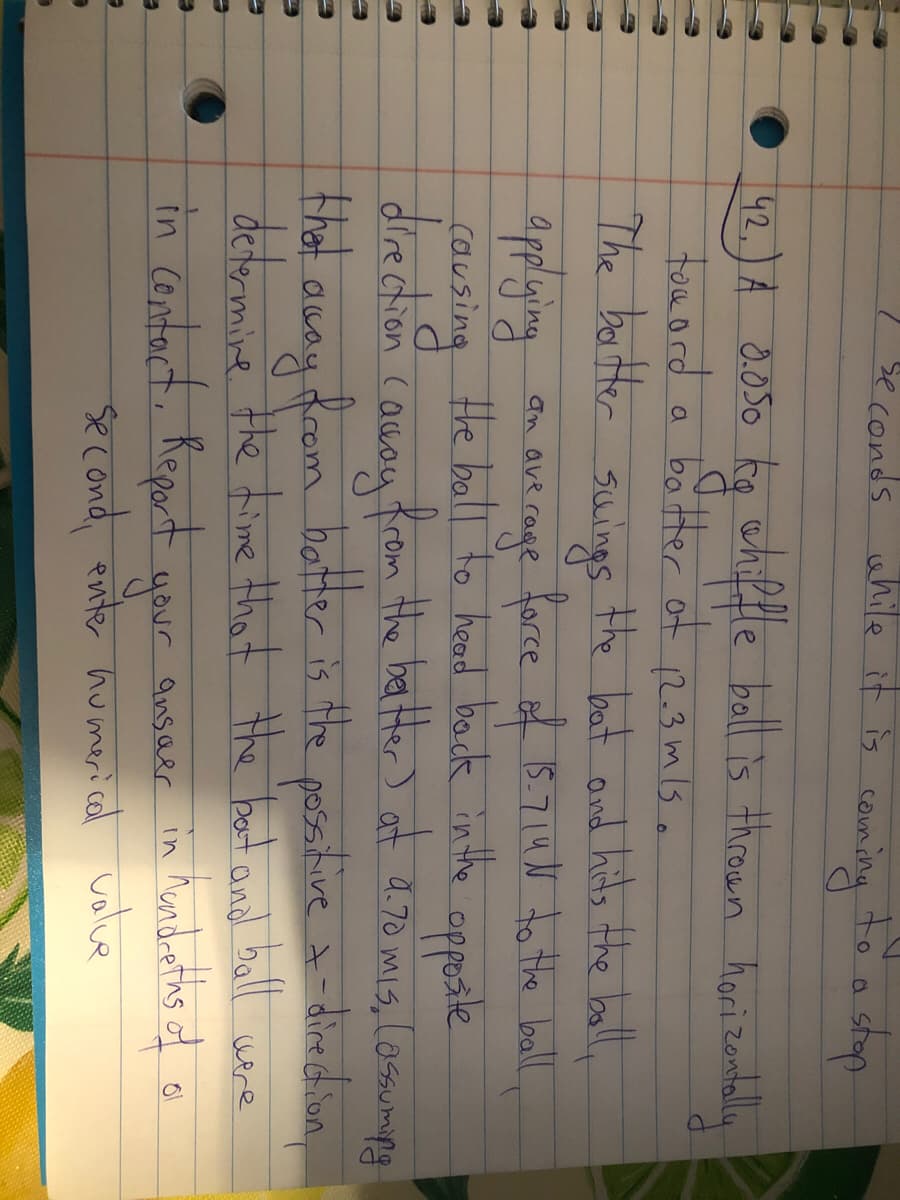 seconds while it is coming to a stop
42.) A 0.050 kg whiffle ball is thrown horizontally
toward a batter at 12.3 m/s.
The batter swings the bat and hits the ball,
applying an average force of 15.714 N to the ball,
causing the ball to head back in the opposite
direction (away from the batter) at 9.70 m/s, (assuming
that away from batter is the possitive x-direction,
determine the time that the bat and ball were
in contact. Report your answer in hundreths of a
second, enter numerical value